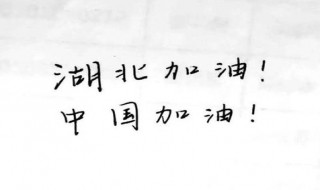 湖北加油！
中国加油！